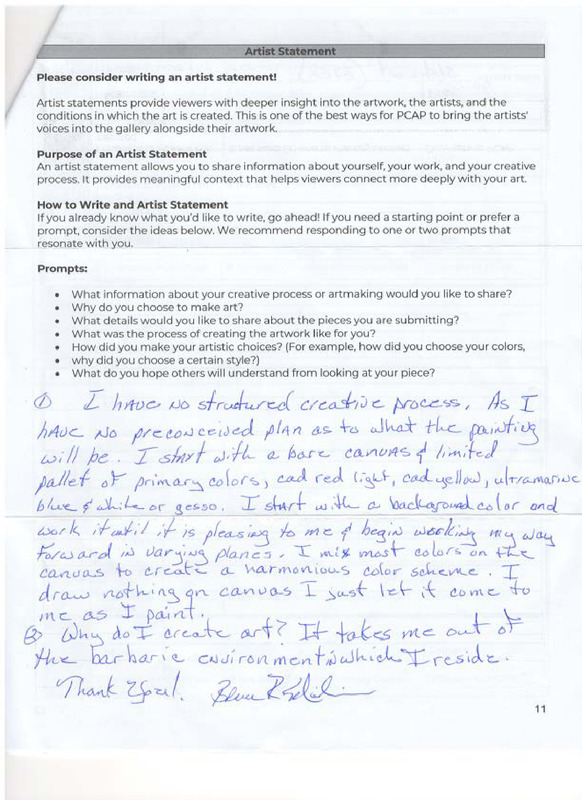 Artist Statement
Please consider writing an artist statement!
Artist statements provide viewers with deeper insight into the artwork, the artists, and the
conditions in which the art is created. This is one of the best ways for PCAP to bring the artists'
voices into the gallery alongside their artwork.
Purpose of an Artist Statement
An artist statement allows you to share information about yourself, your work, and your creative
process. It provides meaningful context that helps viewers connect more deeply with your art.
How to Write and Artist Statement
If you already know what you'd like to write, go ahead! If you need a starting point or prefer a
prompt, consider the ideas below. We recommend responding to one or two prompts that
resonate with you.
Prompts:
• What information about your creative process or artmaking would you like to share?
• Why do you choose to make art?
• What details would you like to share about the pieces you are submitting?
• What was the process of creating the artwork like for you?
• How did you make your artistic choices? (For example, how did you choose your colors,
• why did you choose a certain style?)
• What do you hope others will understand from looking at your piece?
① I have no structured creative process. As I
have no preconceived plan as to what the painting
will be. I start with a bare canvas & limited
pallet of primary colors, cad red light, cad yellow, ultramarine
blue & white or gesso. I start with a background color and
work it until it is pleasing to me & begin working my way
forward in varying planes. I mix most colors on the
canvas to create a harmonious color scheme. I
draw nothing on canvas I just let it come to
me as I paint.
② Why do I create art? It takes me out of
the barbaric environment in which I reside.
Thank You!
11